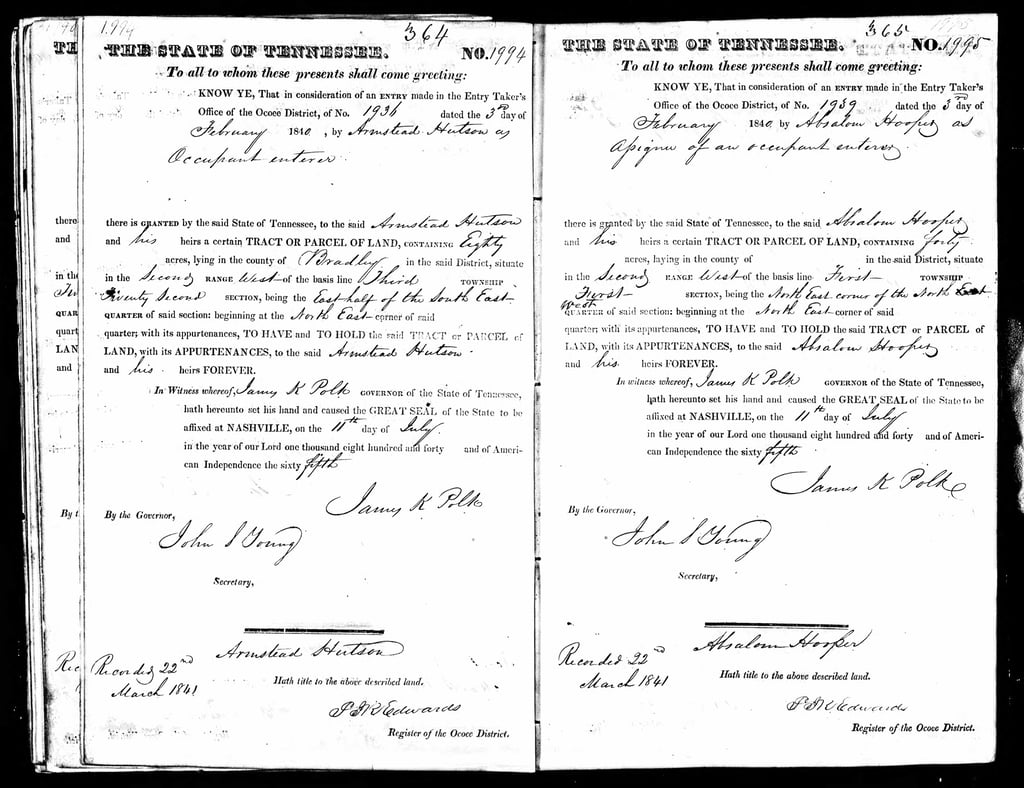 1994
364
THE STATE OF TENNESSEE. NO. 1994
To all to whom these presents shall come greeting:
KNOW YE, That in consideration of an ENTRY made in the Entry Taker's
Office of the Ococe District, of No. 1936 dated the 3rd day of
February 1840, by Armstead Hutson as
Occupant enterer
there is GRANTED by the said State of Tennessee, to the said Armstead Hutson
and his heirs a certain TRACT OR PARCEL OF LAND, CONTAINING Eighty
acres, lying in the county of Bradley in the said District, situate
in the Second RANGE West of the basis line Third TOWNSHIP
Twenty Second SECTION, being the East half of the South East
QUARTER of said section: beginning at the North East corner of said
quarter; with its appurtenances, TO HAVE and TO HOLD the said TRACT or PARCEL of
LAND, with its APPURTENANCES, to the said Armstead Hutson
and his heirs FOREVER.
In Witness whereof, James K Polk GOVERNOR of the State of Tennessee,
hath hereunto set his hand and caused the GREAT SEAL of the State to be
affixed at NASHVILLE, on the 11th day of July
in the year of our Lord one thousand eight hundred and forty and of Ameri-
can Independence the sixty fifth
James K Polk
By the Governor,
John S Young
Secretary,
Armstead Hutson
Recorded 22nd
March 1841
Hath title to the above described land.
P J R Edwards
Register of the Ococe District.
365
THE STATE OF TENNESSEE. NO. 1995
To all to whom these presents shall come greeting:
KNOW YE, That in consideration of an ENTRY made in the Entry Taker's
Office of the Ococe District, of No. 1939 dated the 3rd day of
February 1840 by Absalom Hooper as
Assignee of an occupant enterer
there is granted by the said State of Tennessee, to the said Absalom Hooper
and his heirs a certain TRACT OR PARCEL OF LAND, CONTAINING forty
acres, laying in the county of in the said District, situate
in the Second RANGE West of the basis line First TOWNSHIP
First SECTION, being the North East corner of the North East
West
QUARTER of said section: beginning at the North East corner of said
quarter; with its appurtenances, TO HAVE and TO HOLD the said TRACT or PARCEL of
LAND, with its APPURTENANCES, to the said Absalom Hooper
and his heirs FOREVER.
In witness whereof, James K Polk GOVERNOR of the State of Tennessee,
hath hereunto set his hand and caused the GREAT SEAL of the State to be
affixed at NASHVILLE, on the 11th day of July
in the year of our Lord one thousand eight hundred and forty and of Ameri-
can Independence the sixty fifth
James K Polk
By the Governor,
John S Young
Secretary,
Absalom Hooper
Recorded 22nd
March 1841
Hath title to the above described land.
P J R Edwards
Register of the Ococe District.